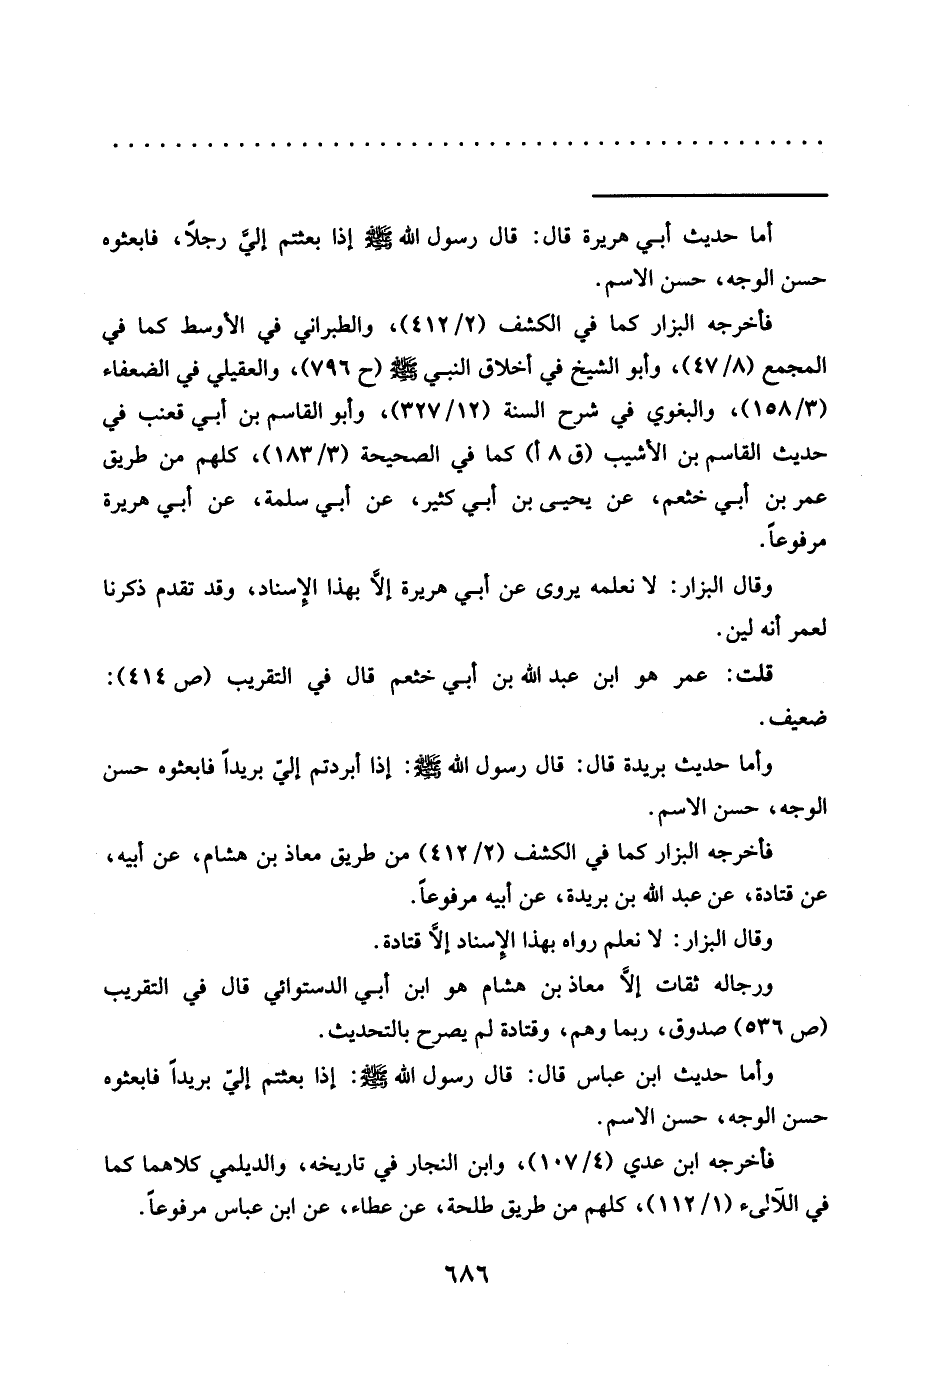 أما حديث أبـي هريرة قال: قال رسول الله ﷺ إذا بعثتم إليَّ رجلاً، فابعثوه
حسن الوجه، حسن الاسم.
فأخرجه البزار كما في الكشف (٤١٢/٢)، والطبراني في الأوسط كما في
المجمع (٤٧/٨)، وأبو الشيخ في أخلاق النبـي ﷺ (ح ٧٩٦)، والعقيلي في الضعفاء
(١٥٨/٣)، والبغوي في شرح السنة (٣٢٧/١٢)، وأبو القاسم بن أبـي قعنب في
حديث القاسم بن الأشيب (ق ٨ أ) كما في الصحيحة (١٨٣/٣)، كلهم من طريق
عمر بن أبـي خثعم، عن يحيـى بن أبـي كثير، عن أبـي سلمة، عن أبـي هريرة
مرفوعاً.
وقال البزار: لا نعلمه يروى عن أبـي هريرة إلاَّ بهذا الإسناد، وقد تقدم ذكرنا
لعمر أنه لين.
قلت: عمر هو ابن عبد الله بن أبـي خثعم قال في التقريب (ص ٤١٤):
ضعيف.
وأما حديث بريدة قال: قال رسول الله ﷺ: إذا أبردتم إليّ بريداً فابعثوه حسن
الوجه، حسن الاسم.
فأخرجه البزار كما في الكشف (٤١٢/٢) من طريق معاذ بن هشام، عن أبيه،
عن قتادة، عن عبد الله بن بريدة، عن أبيه مرفوعاً.
وقال البزار: لا نعلم رواه بهذا الإسناد إلاَّ قتادة.
ورجاله ثقات إلاَّ معاذ بن هشام هو ابن أبـي الدستوائي قال في التقريب
(ص ٥٣٦) صدوق، ربما وهم، وقتادة لم يصرح بالتحديث.
وأما حديث ابن عباس قال: قال رسول الله ﷺ: إذا بعثتم إليّ بريداً فابعثوه
حسن الوجه، حسن الاسم.
فأخرجه ابن عدي (١٠٧/٤)، وابن النجار في تاريخه، والديلمي كلاهما كما
في اللآلىء (١١٢/١)، كلهم من طريق طلحة، عن عطاء، عن ابن عباس مرفوعاً.
٦٨٦